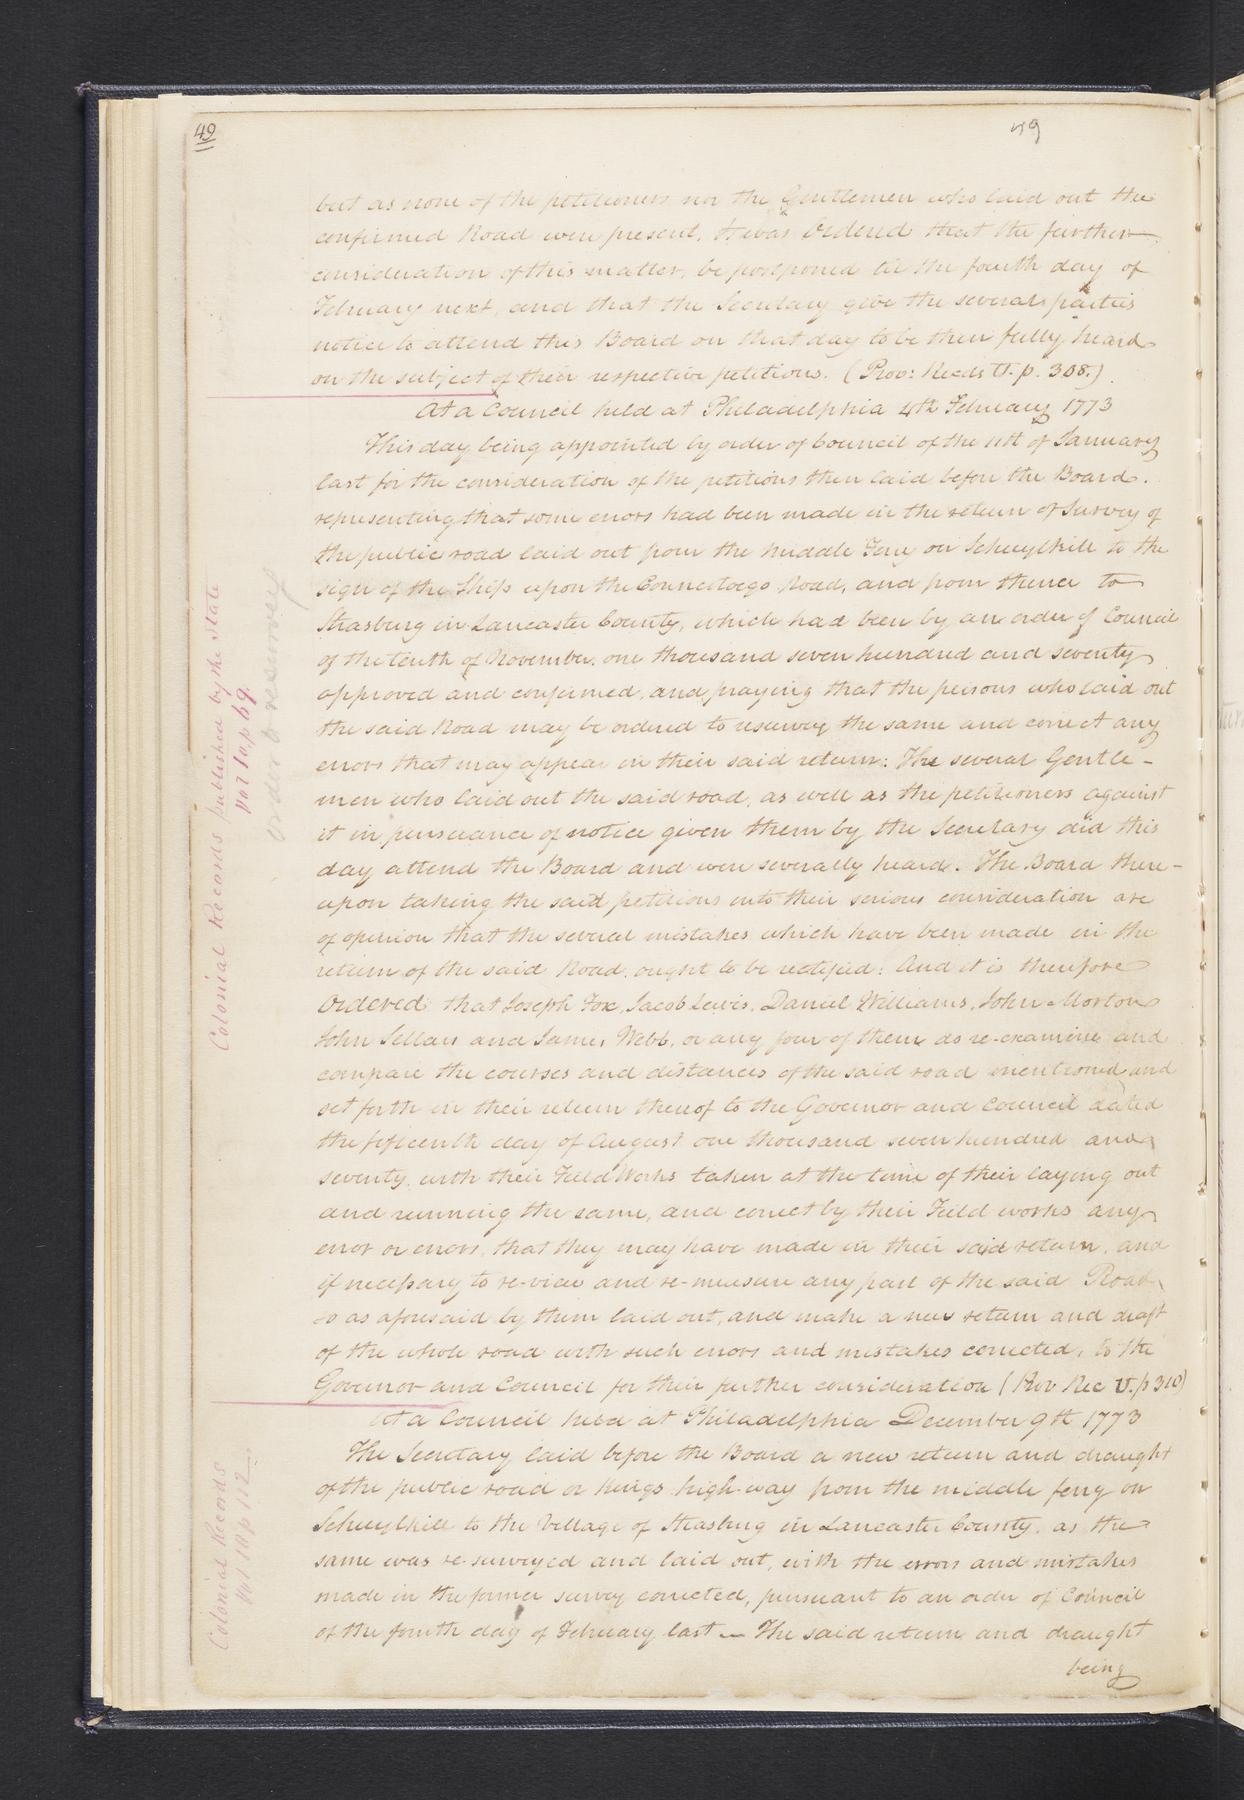 49
49
but as none of the petitioners nor the Gentlemen who laid out the
confirmed Road were present, It was Ordered that the further
consideration of this matter, be postponed til the fourth day of
February next, and that the Secretary give the several parties
notice to attend this Board on that day to be then fully heard
on the subject of their respective petitions. (Prov: Recds U. p. 308.)
At a Council held at Philadelphia 4th February 1773
This day being appointed by order of Council of the 11th of January
last for the consideration of the petitions then laid before the Board.
representing that some errors had been made in the return of Survey of
the public road laid out from the Middle Ferry on Schuylkill to the
sign of the Ship upon the Connestoego Road, and from thence to
Strasburg in Lancaster County, which had been by an order of Council
of the tenth of November. one thousand seven hundred and seventy
approved and confirmed, and praying that the persons who laid out
the said Road may be ordered to resurvey the same and correct any
errors that may appear in their said return: The several Gentle-
men who laid out the said road, as well as the petitioners against
it in persuance of notice given them by the Secretary did this
day attend the Board and were severally heard. The Board there-
upon taking the said petitions into their serious consideration are
of opinion that the several mistakes which have been made in the
return of the said Road, ought to be rectified: And it is therefore
Ordered that Joseph Fox, Jacob Lewis, Daniel Williams, John Morton
John Sellars and James Webb, or any four of them do re-examine and
compare the courses and distances of the said road mentioned and
set forth in their return thereof to the Governor and Council dated
the fifteenth day of August one thousand seven hundred and
seventy, with their Field Works taken at the time of their laying out
and running the same, and correct by their Field works any
error or errors, that they may have made in their said return, and
if necessary to re-view and re-measure any part of the said Road
so as aforesaid by them laid out, and make a new return and draft
of the whole road with such errors and mistakes corrected, to the
Governor and Council for their further consideration (Prov Rec U. p 310)
At a Council held at Philadelphia December 9th 1773
The Secretary laid before the Board a new return and draught
of the public road or Kings high-way from the middle ferry on
Schuylkill to the Village of Strasburg in Lancaster County, as the
same was re-surveyed and laid out, with the errors and mistakes
made in the former survey corrected, pursuant to an order of Council
of the fourth day of February last — The said return and draught
being
Colonial Records published by the State
Vol 10, p 69.
order to resurvey
Colonial Records
Vol 10 p 112